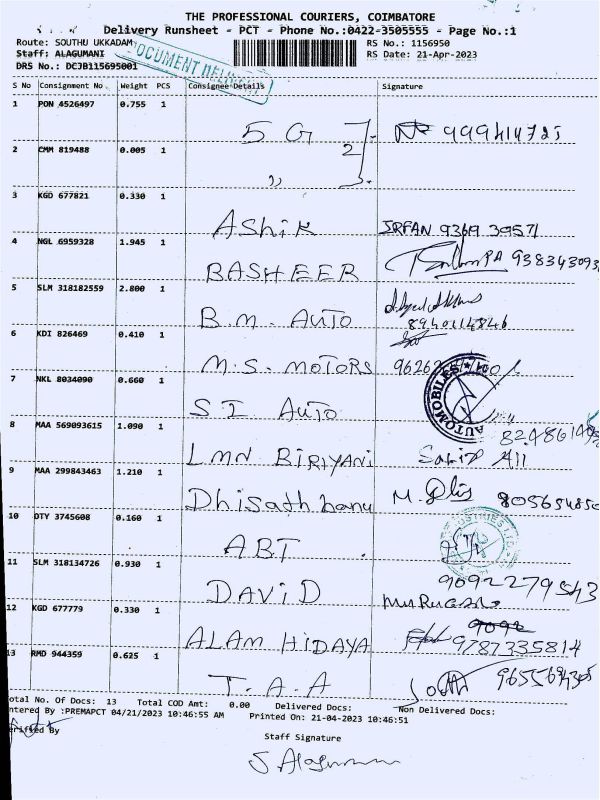 THE PROFESSIONAL COURIERS, COIMBATORE
Delivery Runsheet - PCT - Phone No.:0422-3505555 - Page No.:1
Route: SOUTHU UKKADAM
RS No.: 1156950
Staff: ALAGUMANI
RS Date: 21-Apr-2023
DRS No.: DCJB115695001
DOCUMENT DELIVERY
S No Consignment No Weight PCS Consignee Details Signature
1 PON 4526497 0.755 1
5 G 2
2 CMM 819488 0.005 1
3 KGD 677821 0.330 1
AShiK IRFAN 9369 39571
4 NGL 6959328 1.945 1
BASHEER
5 SLM 318182559 2.800 1
B.M. AUTO
6 KDI 826469 0.410 1
M.S. MOTORS
7 NKL 8034090 0.660 1
AUTOMOBILES
S I AUTO
8 MAA 569093615 1.090 1
LMN BIRIYANi
9 MAA 299843463 1.210 1
Dhisath banu
10 DTY 3745608 0.160 1
ABT
11 SLM 318134726 0.930 1
9092279543
DAViD
12 KGD 677779 0.330 1
9092
ALAM HIDAYA 9787335814
13 RMD 944359 0.625 1
T.A.A
otal No. Of Docs: 13 Total COD Amt: 0.00 Delivered Docs: Non Delivered Docs:
ntered By :PREMAPCT 04/21/2023 10:46:55 AM Printed On: 21-04-2023 10:46:51
erified By
Staff Signature